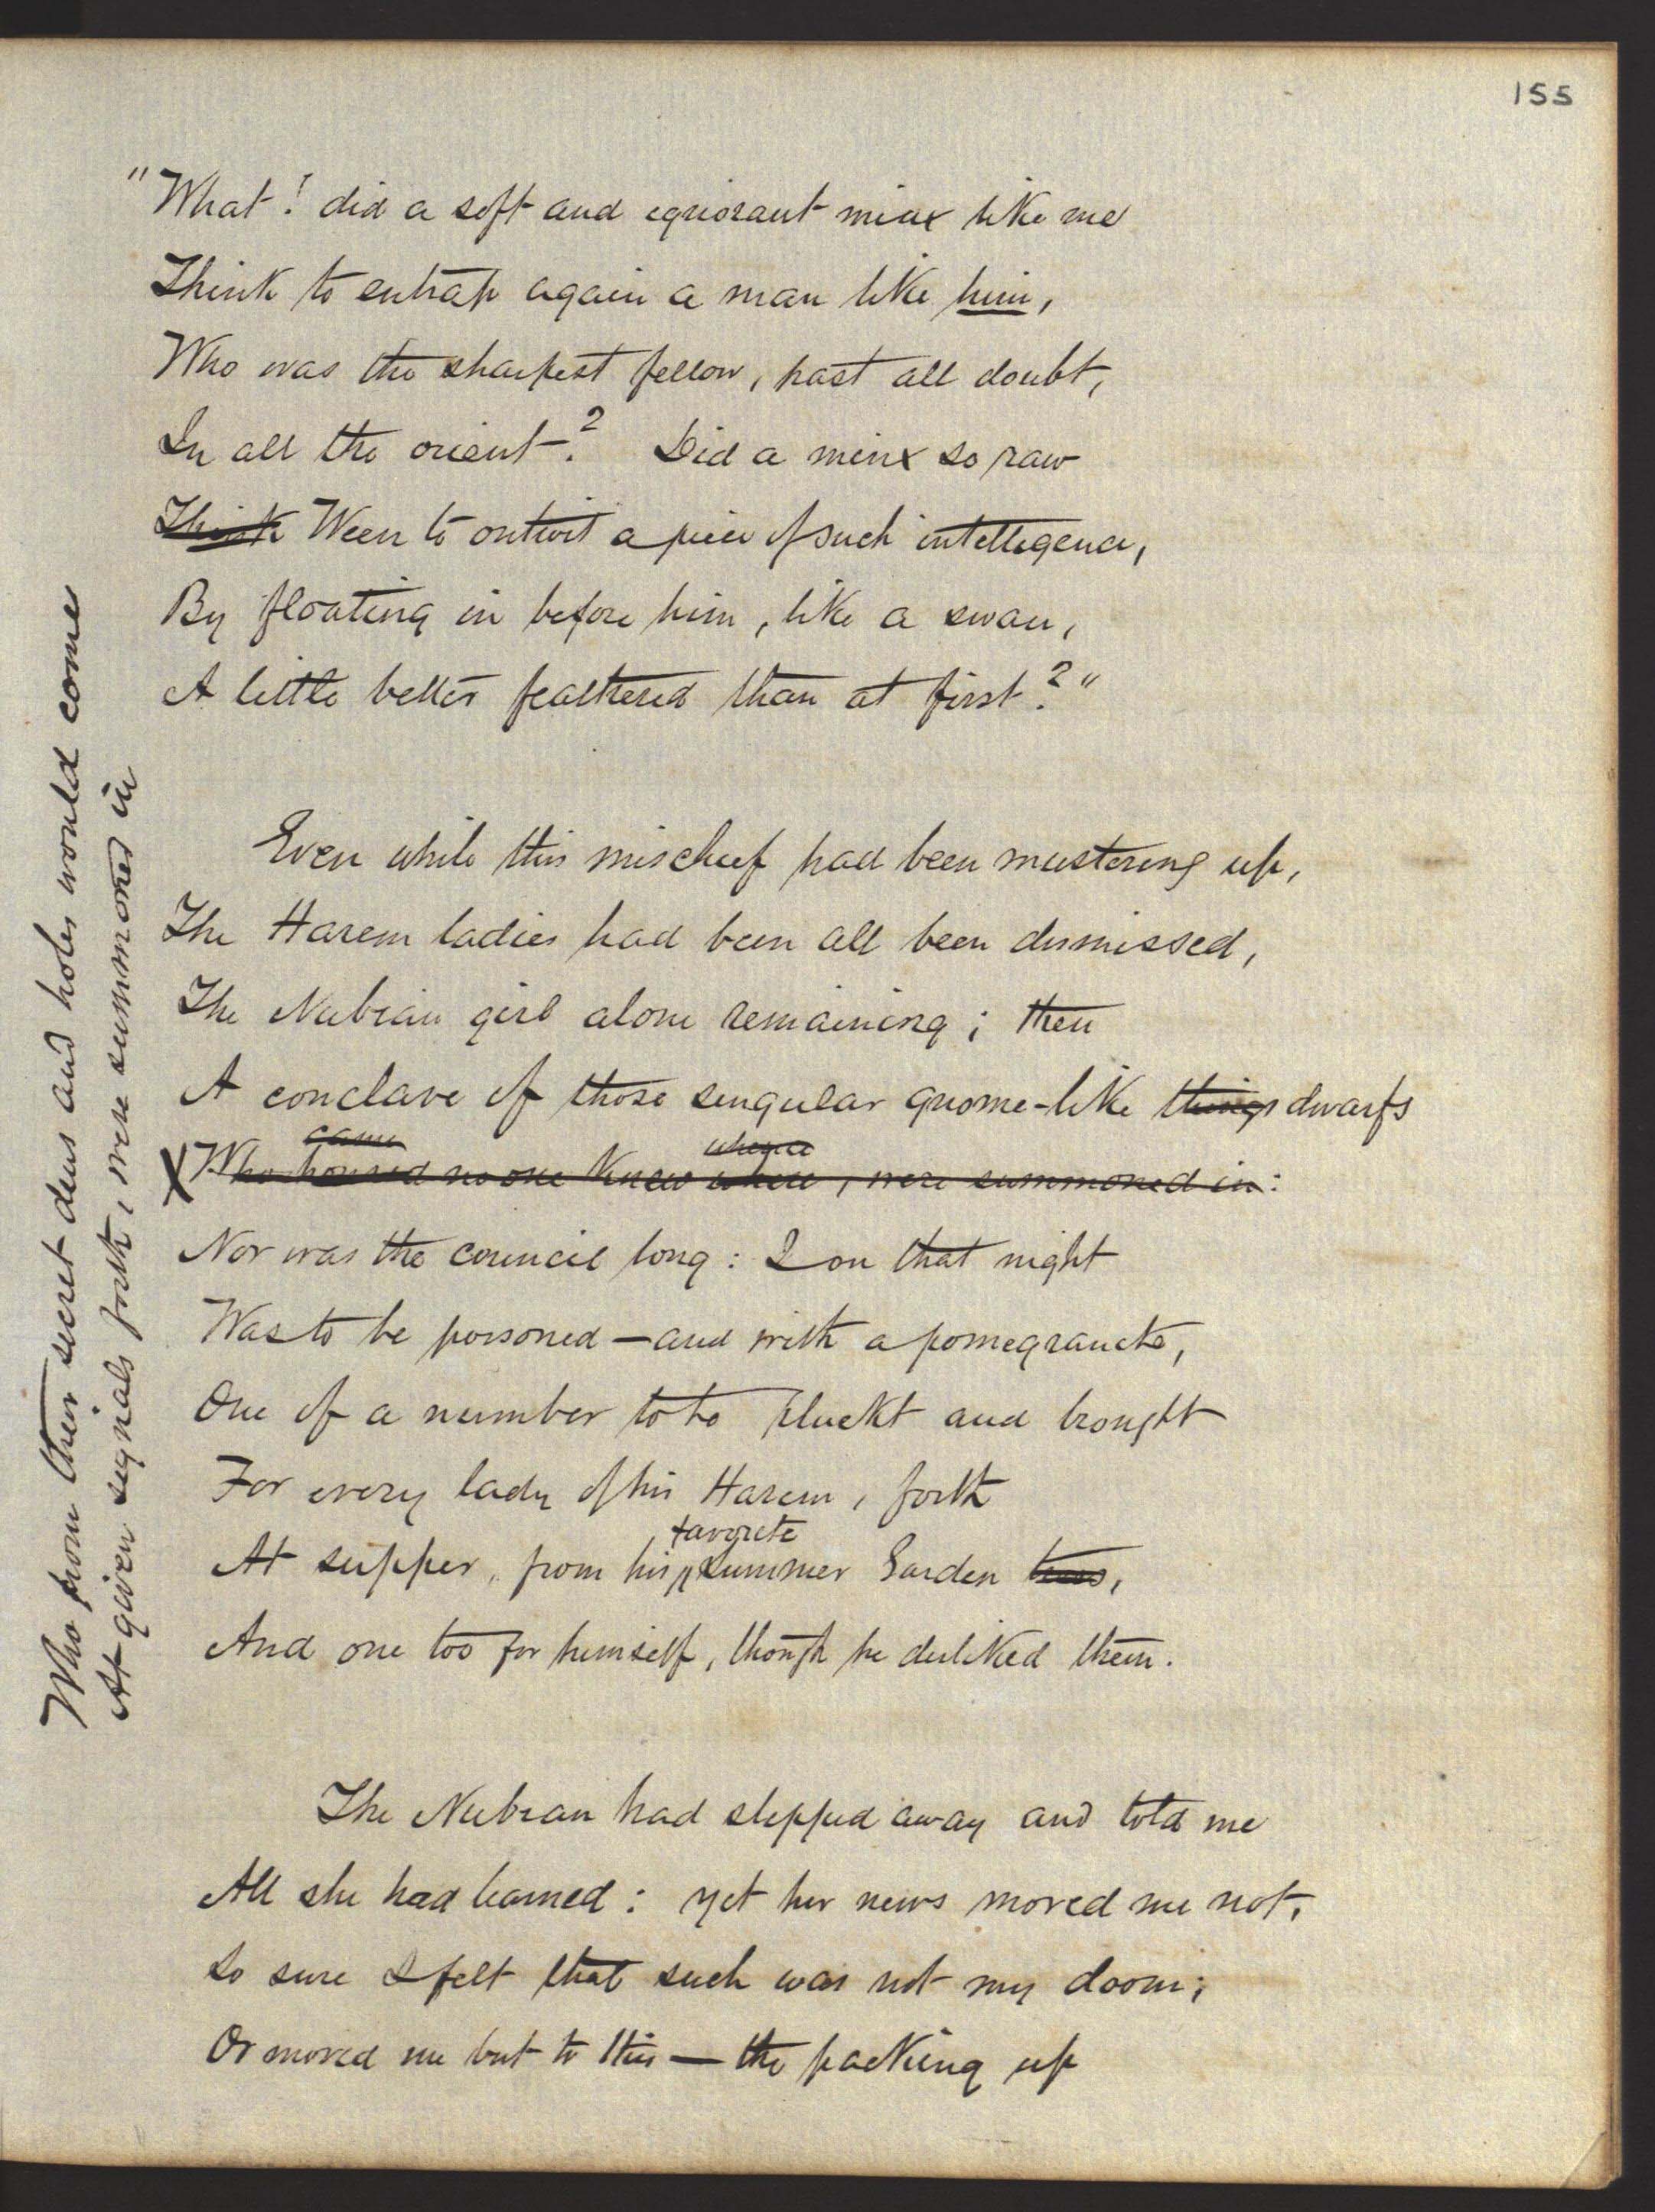 155
"What! did a soft and ignorant minx like me
Think to entrap again a man like him,
Who was the sharpest fellow, past all doubt,
In all the orient? Did a minx so raw
Think Ween to outwit a piece of such intelligence,
By floating in before him, like a swan,
A little better feathered than at first?"
Even while this mischief had been mustering up,
The Harem ladies had been all been dismissed,
The Nubian girl alone remaining; then
A conclave of those singular gnome-like things dwarfs
came whence
X Who housed no one knew where, were summoned in:
Nor was the council long: I on that night
Was to be poisoned—and with a pomegranate,
One of a number to be pluckt and brought
For every lady of his Harem, forth
favorite
At supper, from his summer Garden trees,
And one too for himself, though he disliked them.
The Nubian had slipped away and told me
All she had learned: yet her news moved me not,
So sure I felt that such was not my doom;
Or moved me but to this—the packing up
Who from their secret dens and holes would come
At given signals forth, were summoned in